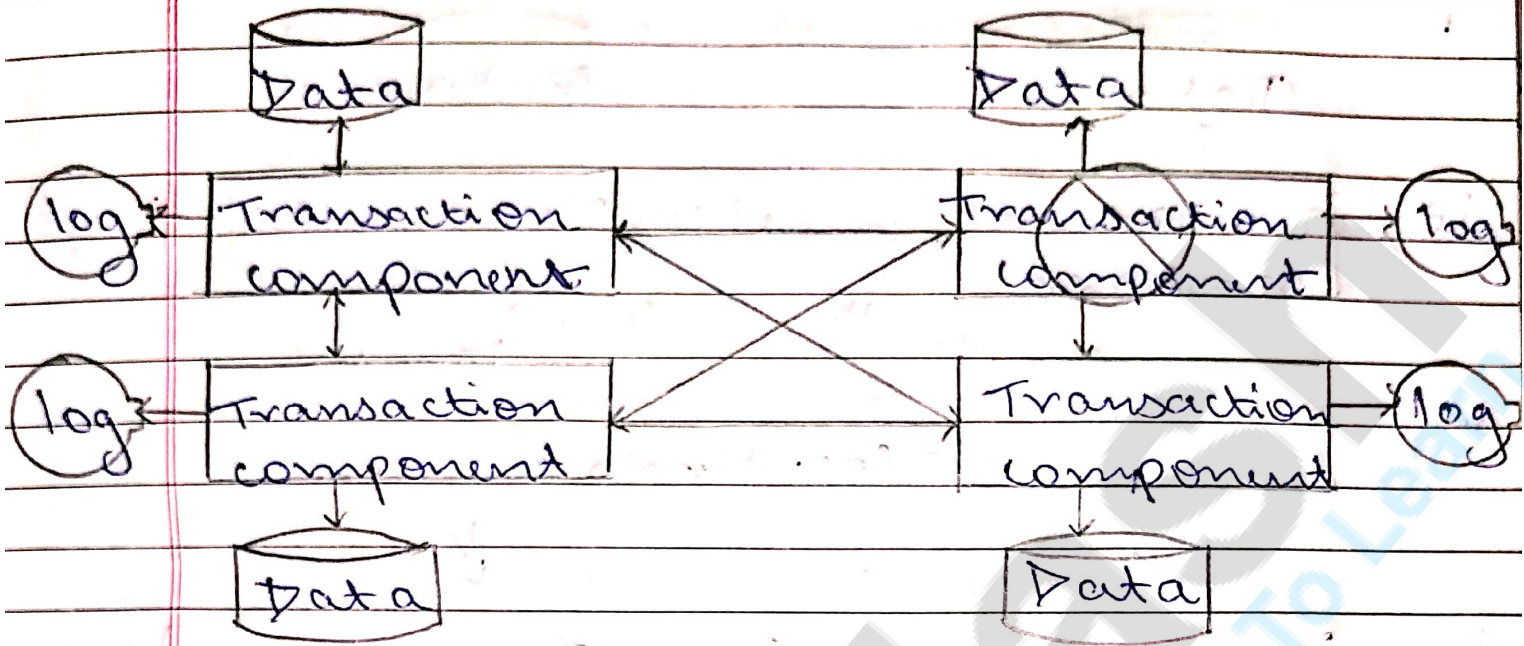 Data Data
log Transaction component Transaction component log
log Transaction component Transaction component log
Data Data
To Learn